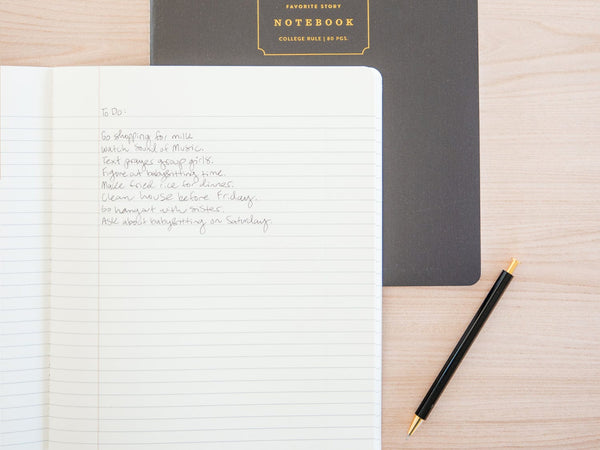 FAVORITE STORY
NOTEBOOK
COLLEGE RULE | 80 PGS.
To Do:
Go shopping for milk
Watch Sound of Music.
Text prayer group girls.
Figure out babysitting time.
Make fried rice for dinner.
Clean house before Friday.
Go hangout with sister.
Ask about babysitting on Saturday.